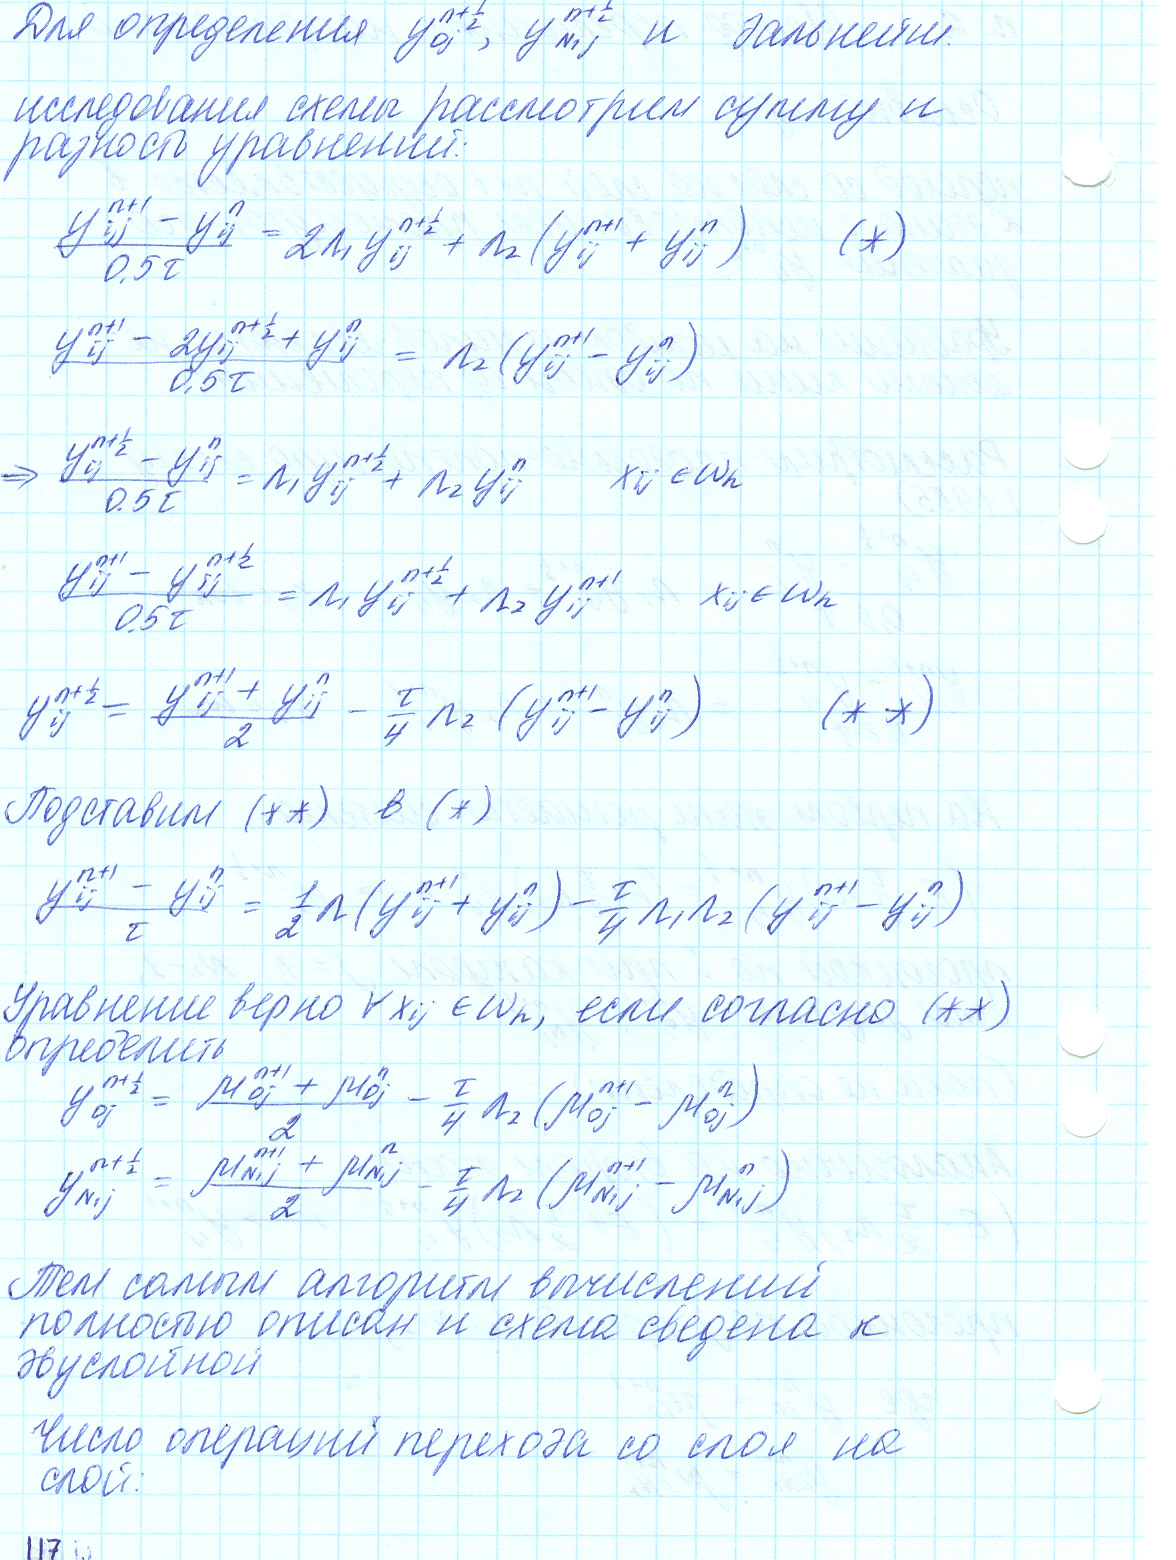 Для определения y_{0j}^{n+1/2}, y_{N₁j}^{n+1/2} и дальнейш.
исследования схемы рассмотрим сумму и
разность уравнений:
(y_{ij}^{n+1} − y_{ij}^{n}) / 0.5τ = 2Λ₁y_{ij}^{n+1/2} + Λ₂(y_{ij}^{n+1} + y_{ij}^{n}) (*)
(y_{ij}^{n+1} − 2y_{ij}^{n+1/2} + y_{ij}^{n}) / 0.5τ = Λ₂(y_{ij}^{n+1} − y_{ij}^{n})
⇒ (y_{ij}^{n+1/2} − y_{ij}^{n}) / 0.5τ = Λ₁y_{ij}^{n+1/2} + Λ₂y_{ij}^{n} x_{ij} ∈ ω_h
(y_{ij}^{n+1} − y_{ij}^{n+1/2}) / 0.5τ = Λ₁y_{ij}^{n+1/2} + Λ₂y_{ij}^{n+1} x_{ij} ∈ ω_h
y_{ij}^{n+1/2} = (y_{ij}^{n+1} + y_{ij}^{n}) / 2 − τ/4 Λ₂(y_{ij}^{n+1} − y_{ij}^{n}) (**)
Подставим (**) в (*)
(y_{ij}^{n+1} − y_{ij}^{n}) / τ = 1/2 Λ(y_{ij}^{n+1} + y_{ij}^{n}) − τ/4 Λ₁Λ₂(y_{ij}^{n+1} − y_{ij}^{n})
Уравнение верно ∀ x_{ij} ∈ ω_h, если согласно (**)
определить
y_{0j}^{n+1/2} = (μ_{0j}^{n+1} + μ_{0j}^{n}) / 2 − τ/4 Λ₂(μ_{0j}^{n+1} − μ_{0j}^{n})
y_{N₁j}^{n+1/2} = (μ_{N₁j}^{n+1} + μ_{N₁j}^{n}) / 2 − τ/4 Λ₂(μ_{N₁j}^{n+1} − μ_{N₁j}^{n})
Тем самым алгоритм вычислений
полностью описан и схема сведена к
двуслойной
Число операций перехода со слоя на
слой:
117